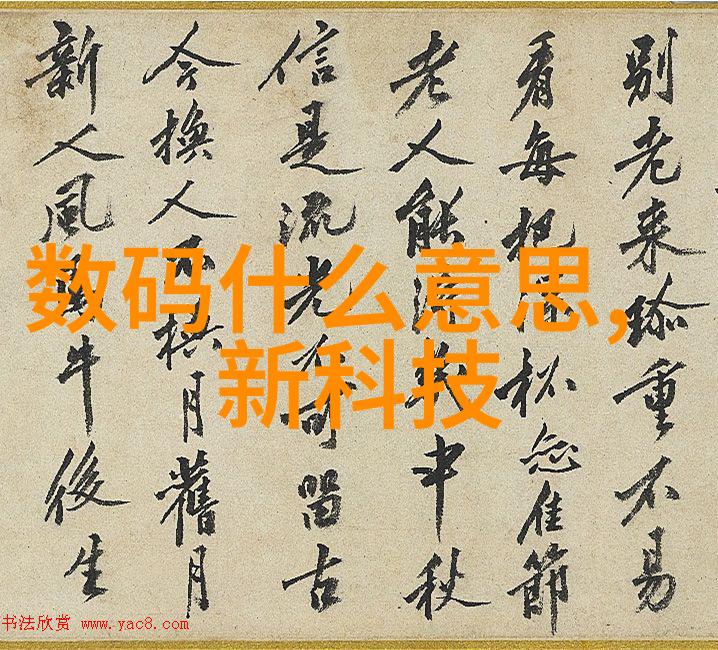 别老来珍重不易
看每把佳節
老人能中秋
信是流光可留古
今换人月舊月
新人風牛後生
数码什么意思,
新科技
书法欣赏 www.yac8.com